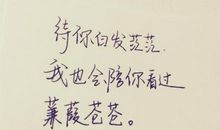 待你白发茫茫.
我也会陪你看过
蒹葭苍苍。